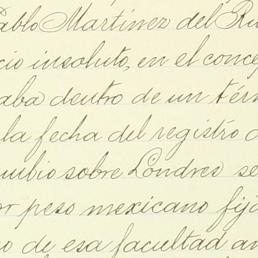 Pablo Martinez del Rí
cio insoluto, en el conce
aba dentro de un tér
la fecha del registro
mbio sobre Londres se
or peso mexicano fij
o de esa facultad an